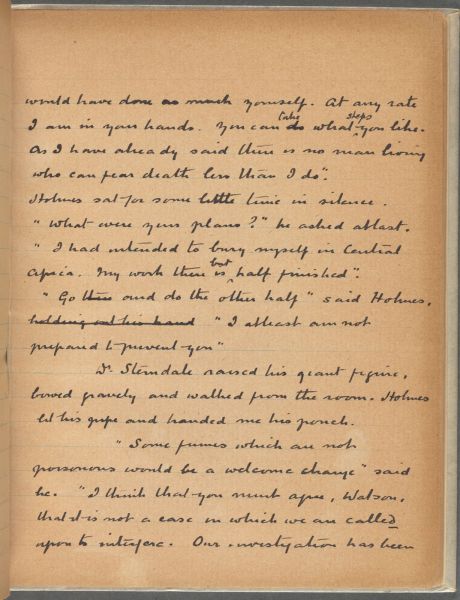 would have done as much yourself. At any rate
I am in your hands. You can do take what steps you like.
As I have already said there is no man living
who can fear death less than I do".
Holmes sat for some little time in silence.
"What were your plans?" he asked at last.
"I had intended to bury myself in Central
Africa. My work there is but half finished".
"Go and do the other half" said Holmes,
holding out his hand "I at least am not
prepared to prevent you"
Dr Sterndale raised his giant figure,
bowed gravely and walked from the room. Holmes
lit his pipe and handed me his pouch.
"Some fumes which are not
poisonous would be a welcome change" said
he. "I think that you must agree, Watson,
that it is not a case in which we are called
upon to interfere. Our investigation has been